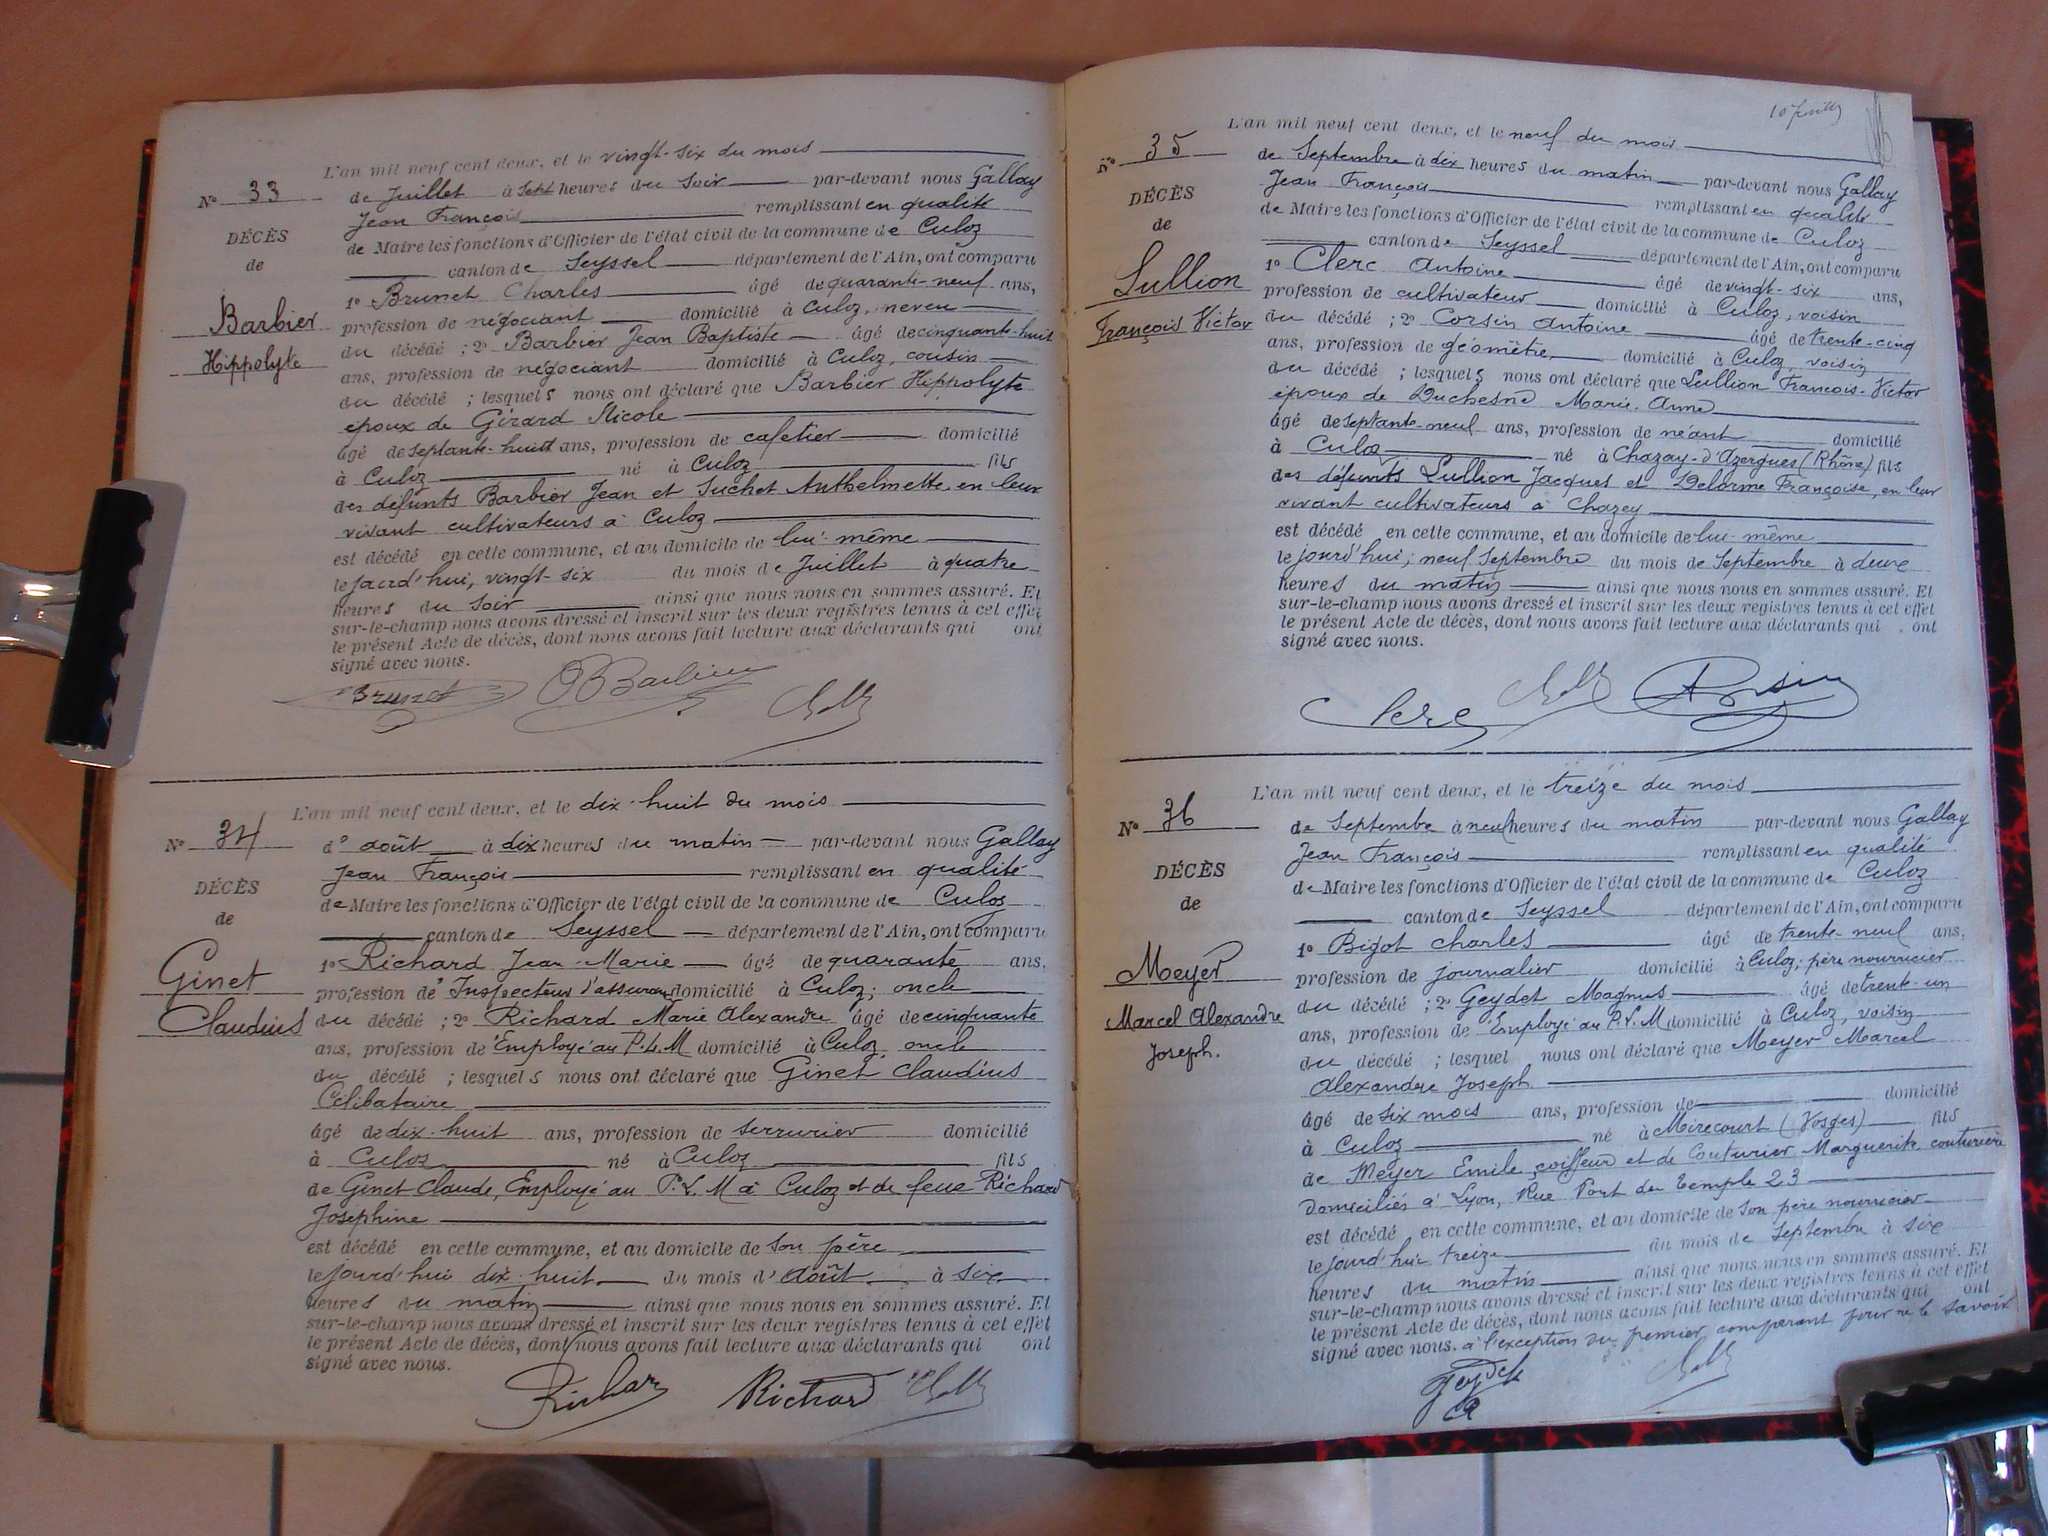 L'an mil neuf cent deux, et le vingt-six du mois
N° 33
de Juillet à sept heures du soir par-devant nous Gallay
Jean François remplissant en qualité
DÉCÈS
de Maire les fonctions d'Officier de l'état civil de la commune de Culoz
de
canton de Seyssel département de l'Ain, ont comparu
1° Brunet Charles âgé de quarante-neuf ans,
Barbier
profession de négociant domicilié à Culoz, neveu
Hippolyte
du décédé ; 2° Barbier Jean Baptiste âgé de cinquante-huit
ans, profession de négociant domicilié à Culoz, cousin
du décédé ; lesquels nous ont déclaré que Barbier Hippolyte
époux de Girard Nicole
âgé de septante-huit ans, profession de cafetier domicilié
à Culoz né à Culoz fils
des défunts Barbier Jean et Suchet Anthelmette, en leur
vivant cultivateurs à Culoz
est décédé en cette commune, et au domicile de lui-même
le jourd'hui, vingt-six du mois de Juillet à quatre
heures du soir ainsi que nous nous en sommes assuré. Et
sur-le-champ nous avons dressé et inscrit sur les deux registres tenus à cet effet
le présent Acte de décès, dont nous avons fait lecture aux déclarants qui ont
signé avec nous.
Brunet Barbier
L'an mil neuf cent deux, et le dix-huit du mois
N° 34
d' août à dix heures du matin par-devant nous Gallay
Jean François remplissant en qualité
DÉCÈS
de Maire les fonctions d'Officier de l'état civil de la commune de Culoz
de
canton de Seyssel département de l'Ain, ont comparu
Ginet
1° Richard Jean-Marie âgé de quarante ans,
profession de Inspecteur d'assurances domicilié à Culoz, oncle
Claudius
du décédé ; 2° Richard Marie Alexandre âgé de cinquante
ans, profession de Employé au P.L.M domicilié à Culoz, oncle
du décédé ; lesquels nous ont déclaré que Ginet Claudius
Célibataire
âgé de dix-huit ans, profession de serrurier domicilié
à Culoz né à Culoz fils
de Ginet Claude, Employé au P.L.M à Culoz et de feue Richard
Joséphine
est décédé en cette commune, et au domicile de son père
le jourd'hui dix-huit du mois d'août à six
heures du matin ainsi que nous nous en sommes assuré. Et
sur-le-champ nous avons dressé et inscrit sur les deux registres tenus à cet effet
le présent Acte de décès, dont nous avons fait lecture aux déclarants qui ont
signé avec nous.
Richard Richard
L'an mil neuf cent deux, et le neuf du mois
N° 35
de Septembre à dix heures du matin par-devant nous Gallay
Jean François remplissant en qualité
DÉCÈS
de Maire les fonctions d'Officier de l'état civil de la commune de Culoz
de
canton de Seyssel département de l'Ain, ont comparu
Lullion
1° Clerc Antoine âgé de vingt-six ans,
profession de cultivateur domicilié à Culoz, voisin
François Victor
du décédé ; 2° Corsin Antoine âgé de trente-cinq
ans, profession de géomètre domicilié à Culoz, voisin
du décédé ; lesquels nous ont déclaré que Lullion François-Victor
époux de Duchesne Marie-Anne
âgé de septante-neuf ans, profession de néant domicilié
à Culoz né à Chazay-d'Azergues (Rhône) fils
des défunts Lullion Jacques et Delorme Françoise, en leur
vivant cultivateurs à Chazey
est décédé en cette commune, et au domicile de lui-même
le jourd'hui, neuf Septembre du mois de Septembre à deux
heures du matin ainsi que nous nous en sommes assuré. Et
sur-le-champ nous avons dressé et inscrit sur les deux registres tenus à cet effet
le présent Acte de décès, dont nous avons fait lecture aux déclarants qui ont
signé avec nous.
Clerc Corsin
L'an mil neuf cent deux, et le treize du mois
N° 36
de Septembre à neuf heures du matin par-devant nous Gallay
Jean François remplissant en qualité
DÉCÈS
de Maire les fonctions d'Officier de l'état civil de la commune de Culoz
de
canton de Seyssel département de l'Ain, ont comparu
1° Bigot Charles âgé de trente-neuf ans,
Meyer
profession de journalier domicilié à Culoz, père nourricier
Marcel Alexandre
du décédé ; 2° Geydet Magnus âgé de trente-un
Joseph.
ans, profession de Employé au P.L.M domicilié à Culoz, voisin
du décédé ; lesquel nous ont déclaré que Meyer Marcel
Alexandre Joseph
âgé de six mois ans, profession de domicilié
à Culoz né à Mirecourt (Vosges) fils
de Meyer Emile, coiffeur et de Couturier Marguerite, couturière
domiciliés à Lyon, Rue Port du Temple 23
est décédé en cette commune, et au domicile de son père nourricier
le jourd'hui treize du mois de Septembre à six
heures du matin ainsi que nous nous en sommes assuré. Et
sur-le-champ nous avons dressé et inscrit sur les deux registres tenus à cet effet
le présent Acte de décès, dont nous avons fait lecture aux déclarants qui ont
signé avec nous. à l'exception du premier comparant pour ne le savoir
Geydet